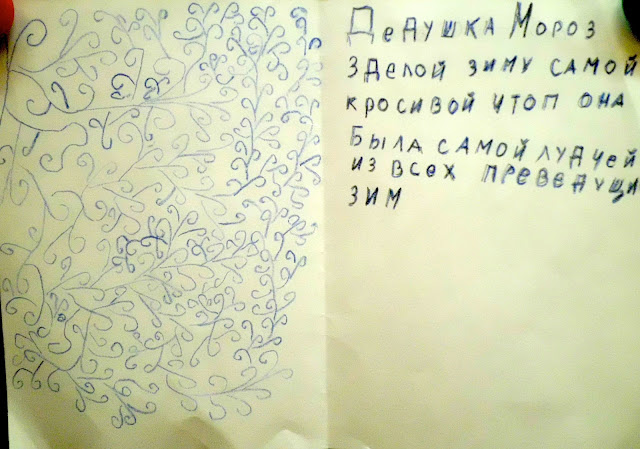 Дедушка Мороз
зделой зиму самой
кросивой чтоп она
была самой лудчей
из всех преведущи
зим